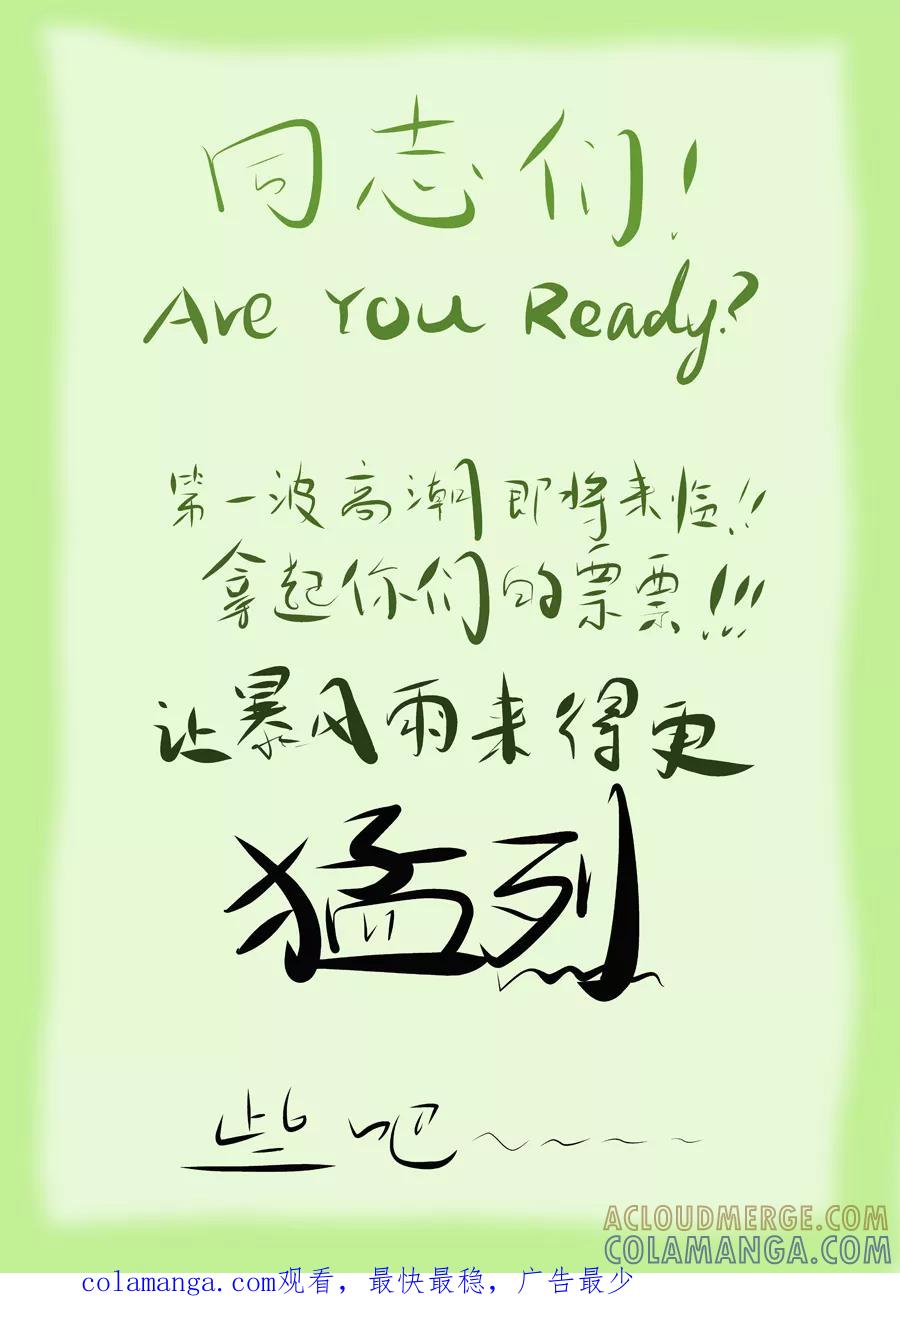 同志们！
Are You Ready?
第一波高潮即将来临！！
拿起你们的票票！！！
让暴风雨来得更
猛烈
些吧~~~~~
ACLOUDMERGE.COM
COLAMANGA.COM
colamanga.com观看，最快最稳，广告最少